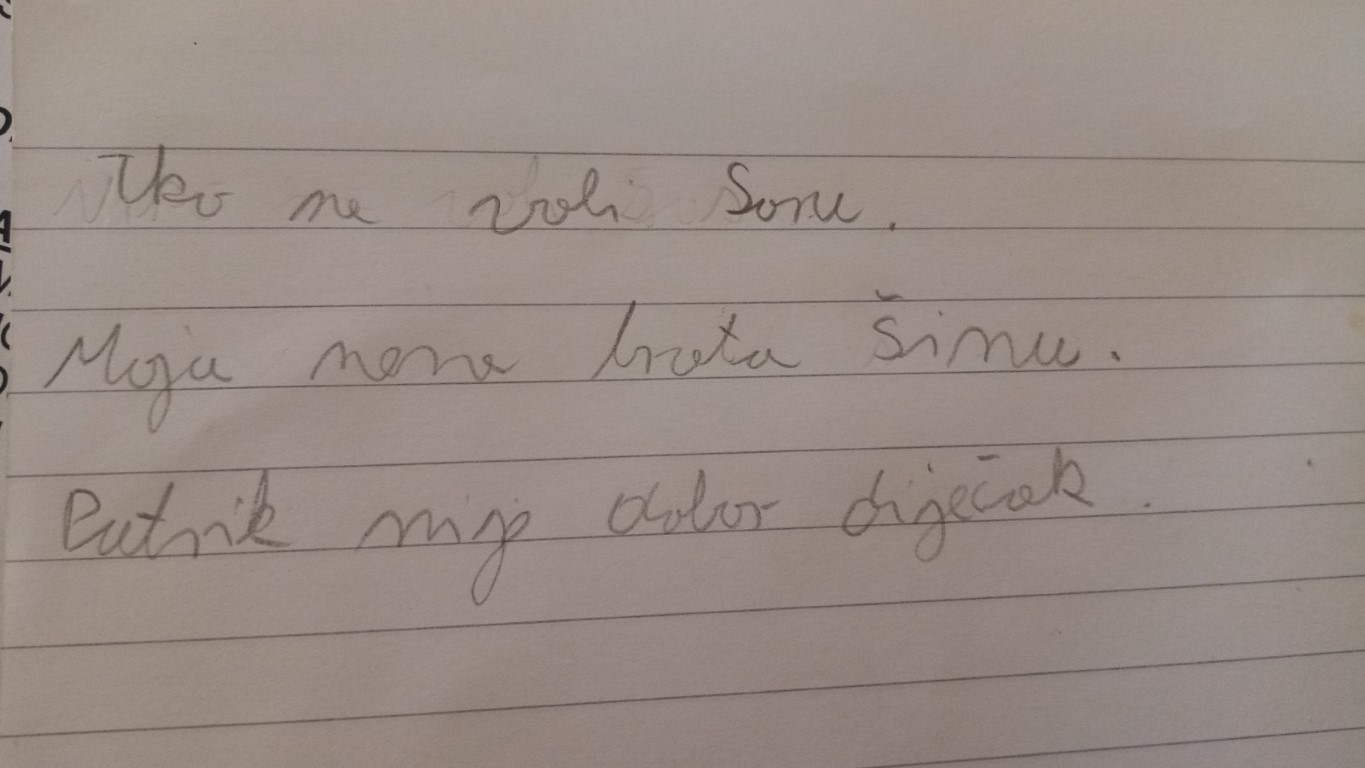 Tko ne voli Sonu.
Moja nona hrata Šimu.
Patnik nije dobor dijećak.